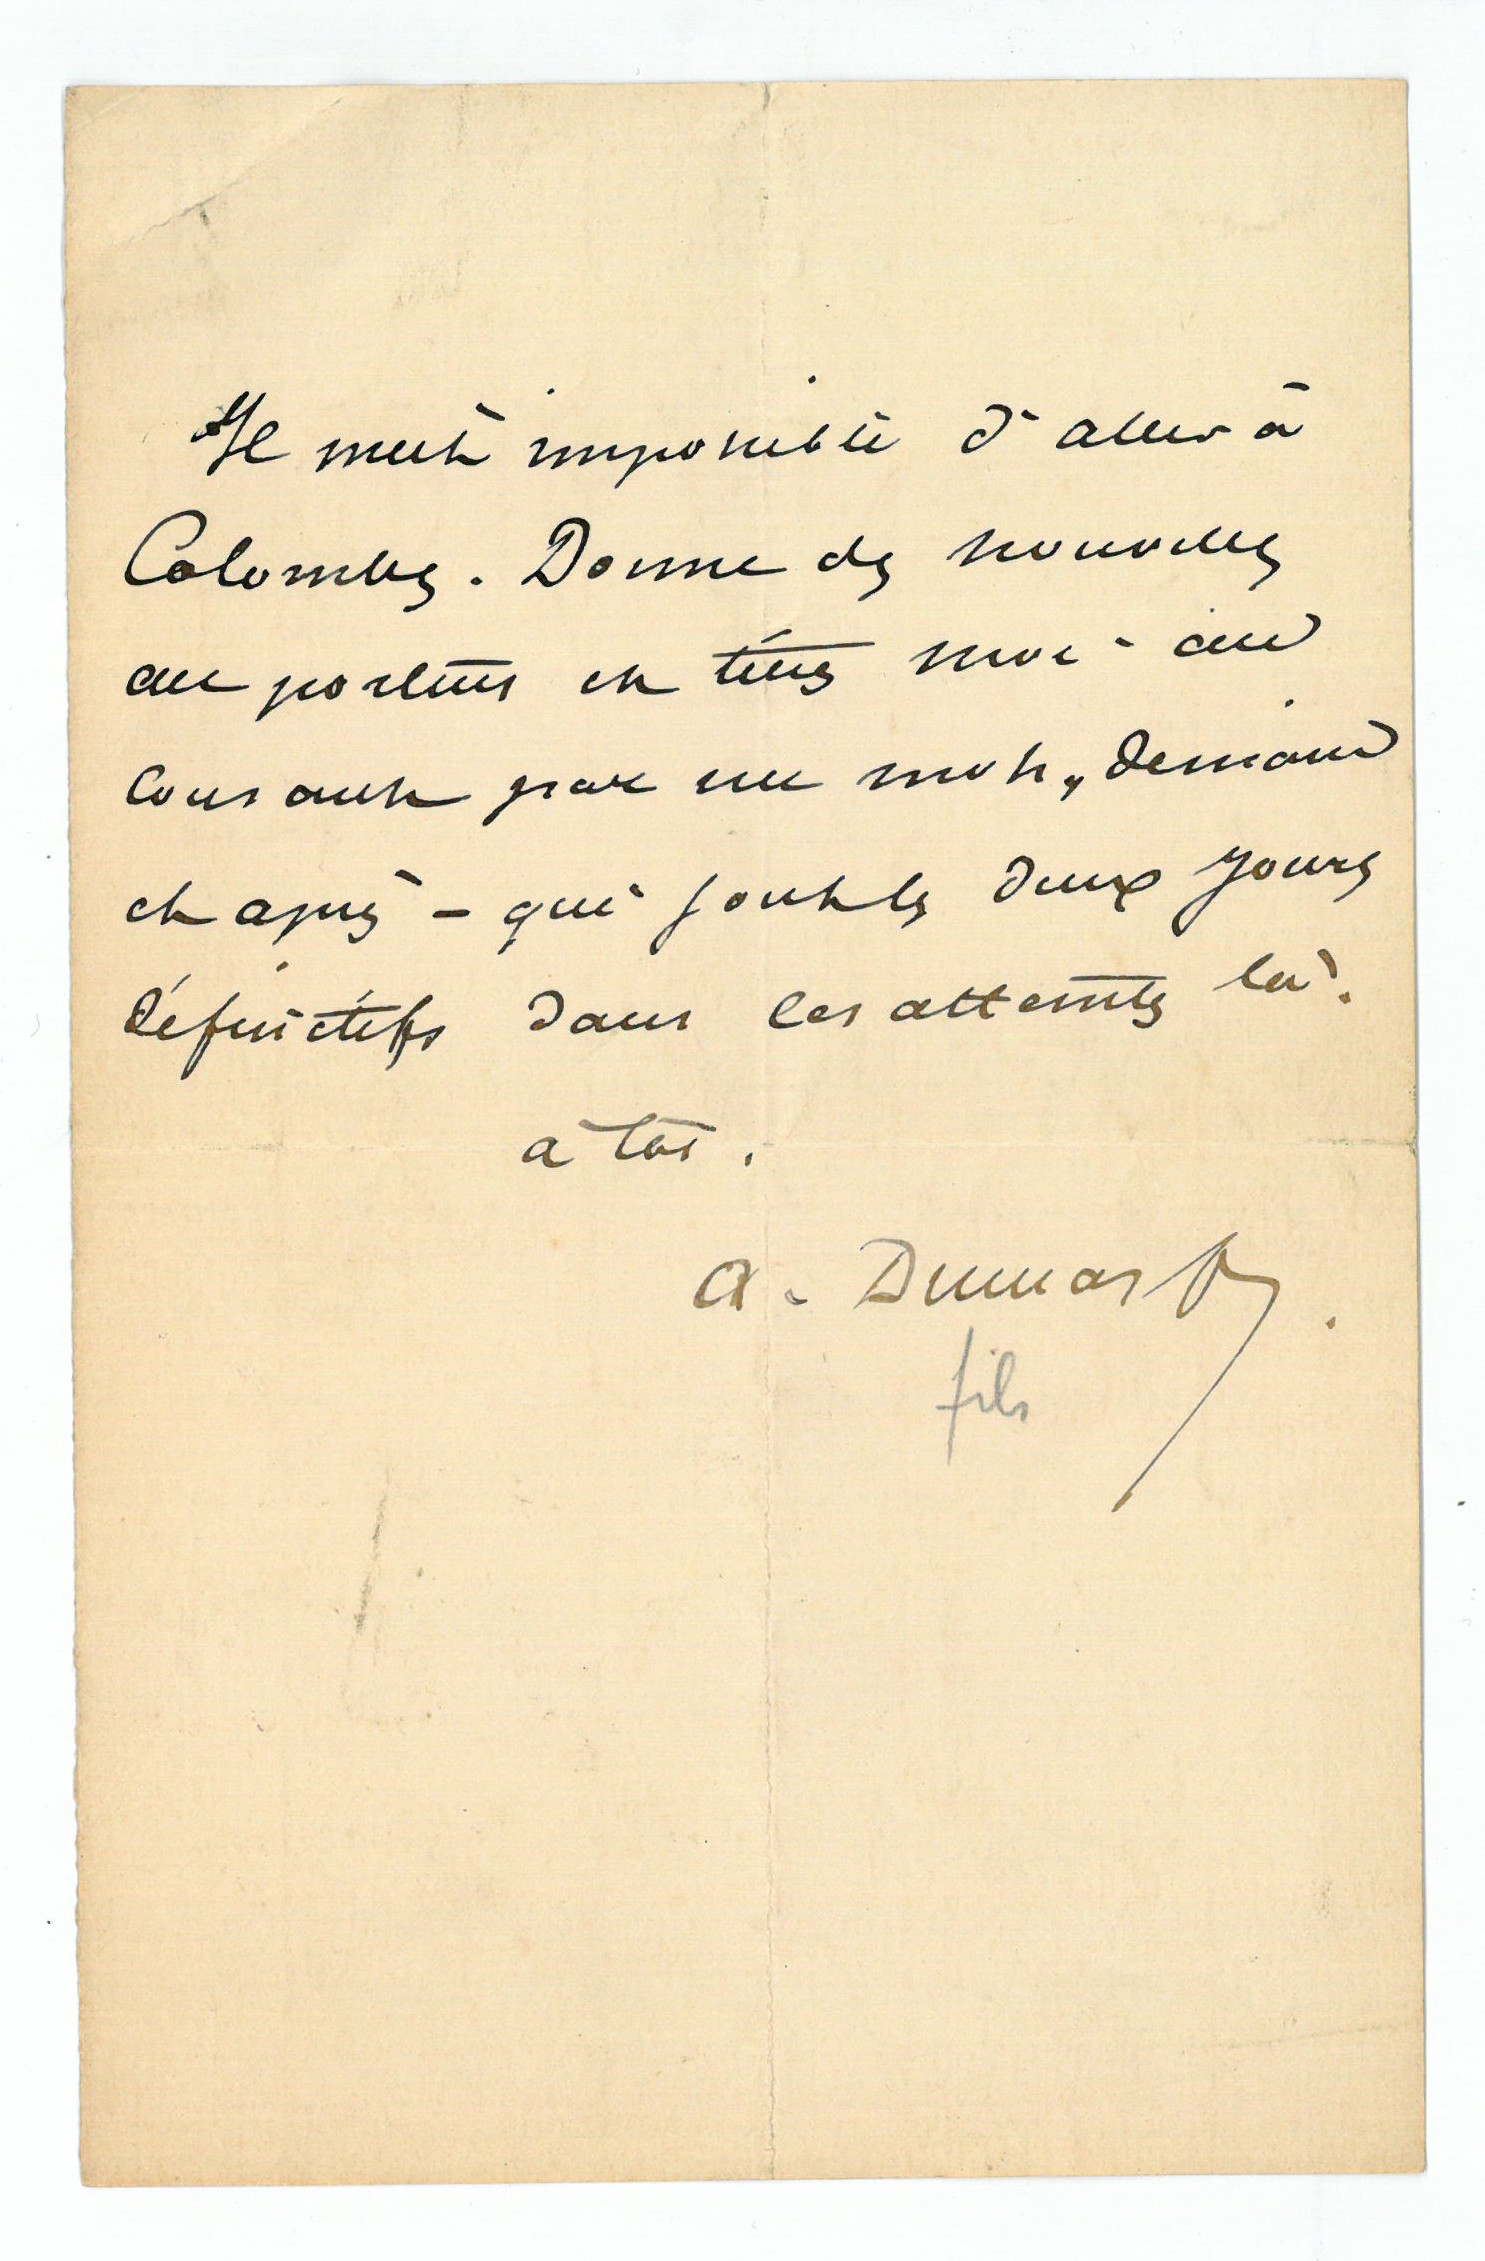 Il m'est impossible d'aller à
Colombes. Donne des nouvelles
au porteur et tiens moi au
courant par un mot, demain
et après – qui sont les deux jours
définitifs dans ces atteintes là.
à toi.
A. Dumas f.
fils